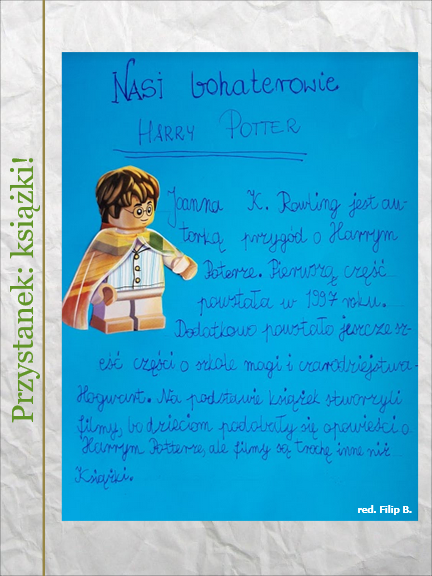 Przystanek: książki!
Nasi bohaterowie
HARRY POTTER
Joanna K. Rowling jest au-
torką przygód o Harrym
Poterze. Pierwszą część
powstała w 1997 roku.
Dodatkowo powstało jeszcze sz-
eść części o szkole magi i czarodziejstwa-
Hogwart. Na podstawie książek stworzyli
filmy, bo dzieciom podobały się opowieści o
Harrym Potterze, ale filmy są trochę inne niż
Książki.
red. Filip B.